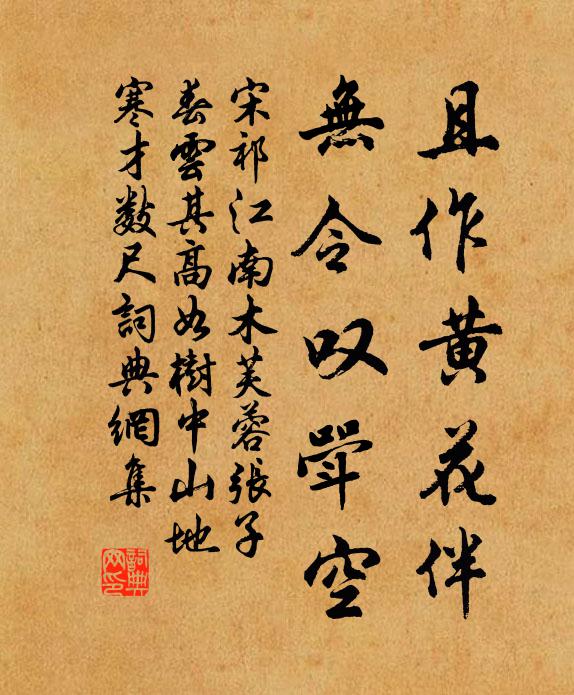 且作黄花伴
無令叹斝空
宋祁江南木芙蓉張子
春雲其高如樹中山地
寒才数尺詞典網集
詞典
网印